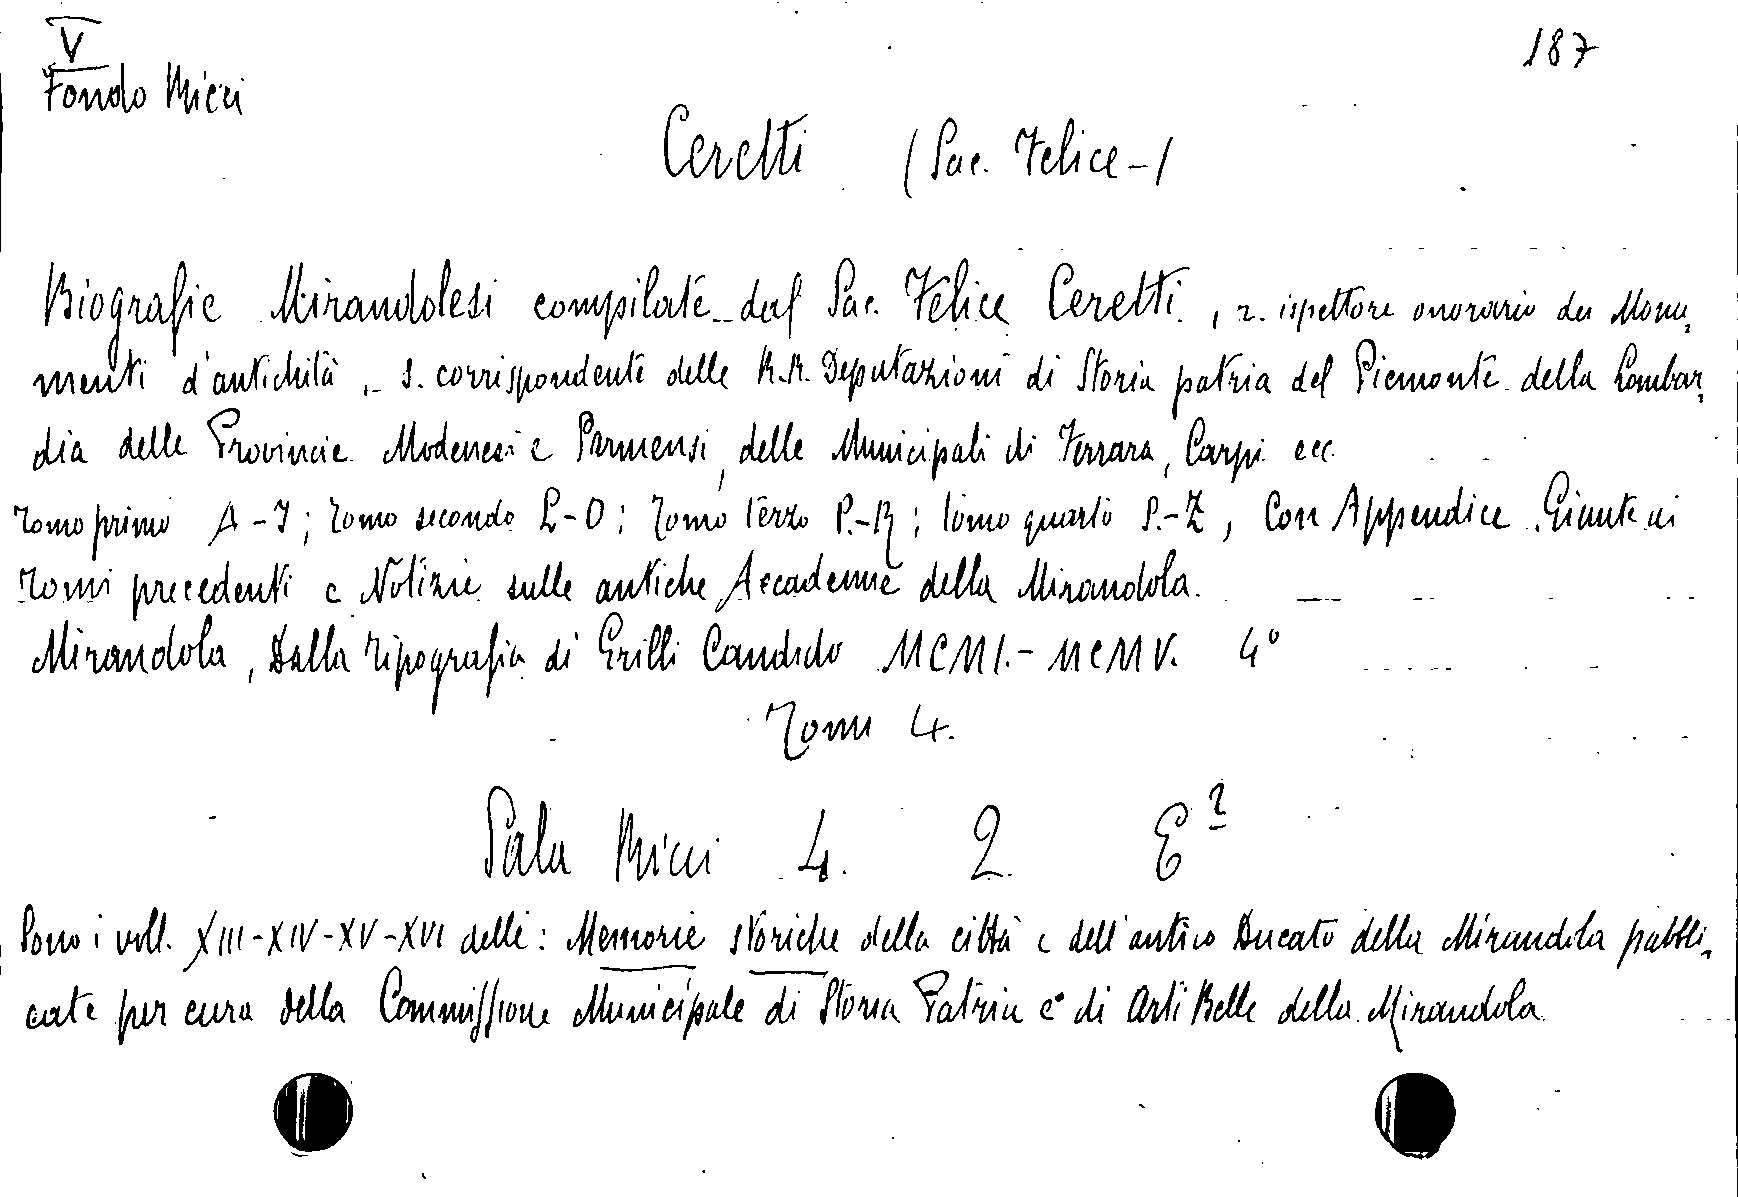 V
187
Fondo Ricci
Ceretti (Sac. Felice-)
Biografie Mirandolesi compilate dal Sac. Felice Ceretti, r. ispettore onorario dei Monu,
menti d'antichità, s. corrispondente delle R.R. Deputazioni di Storia patria del Piemonte della Lombar,
dia delle Provincie Modenesi e Parmensi, delle Municipali di Ferrara, Carpi ecc.
Tomo primo A-I; Tomo secondo L-O; Tomo terzo P.-R; tomo quarto S.-Z, Con Appendice Giunte ai
Tomi precedenti e Notizie sulle antiche Accademie della Mirandola.
Mirandola, Dalla Tipografia di Grilli Candido MCMI.-MCMV. 4°
Tomi 4.
Sala Ricci 4. 2. E²
Sono i voll. XIII-XIV-XV-XVI delle: Memorie storiche della città e dell'antico Ducato della Mirandola pubbli,
cate per cura della Commissione Municipale di Storia Patria e di Arti Belle della Mirandola